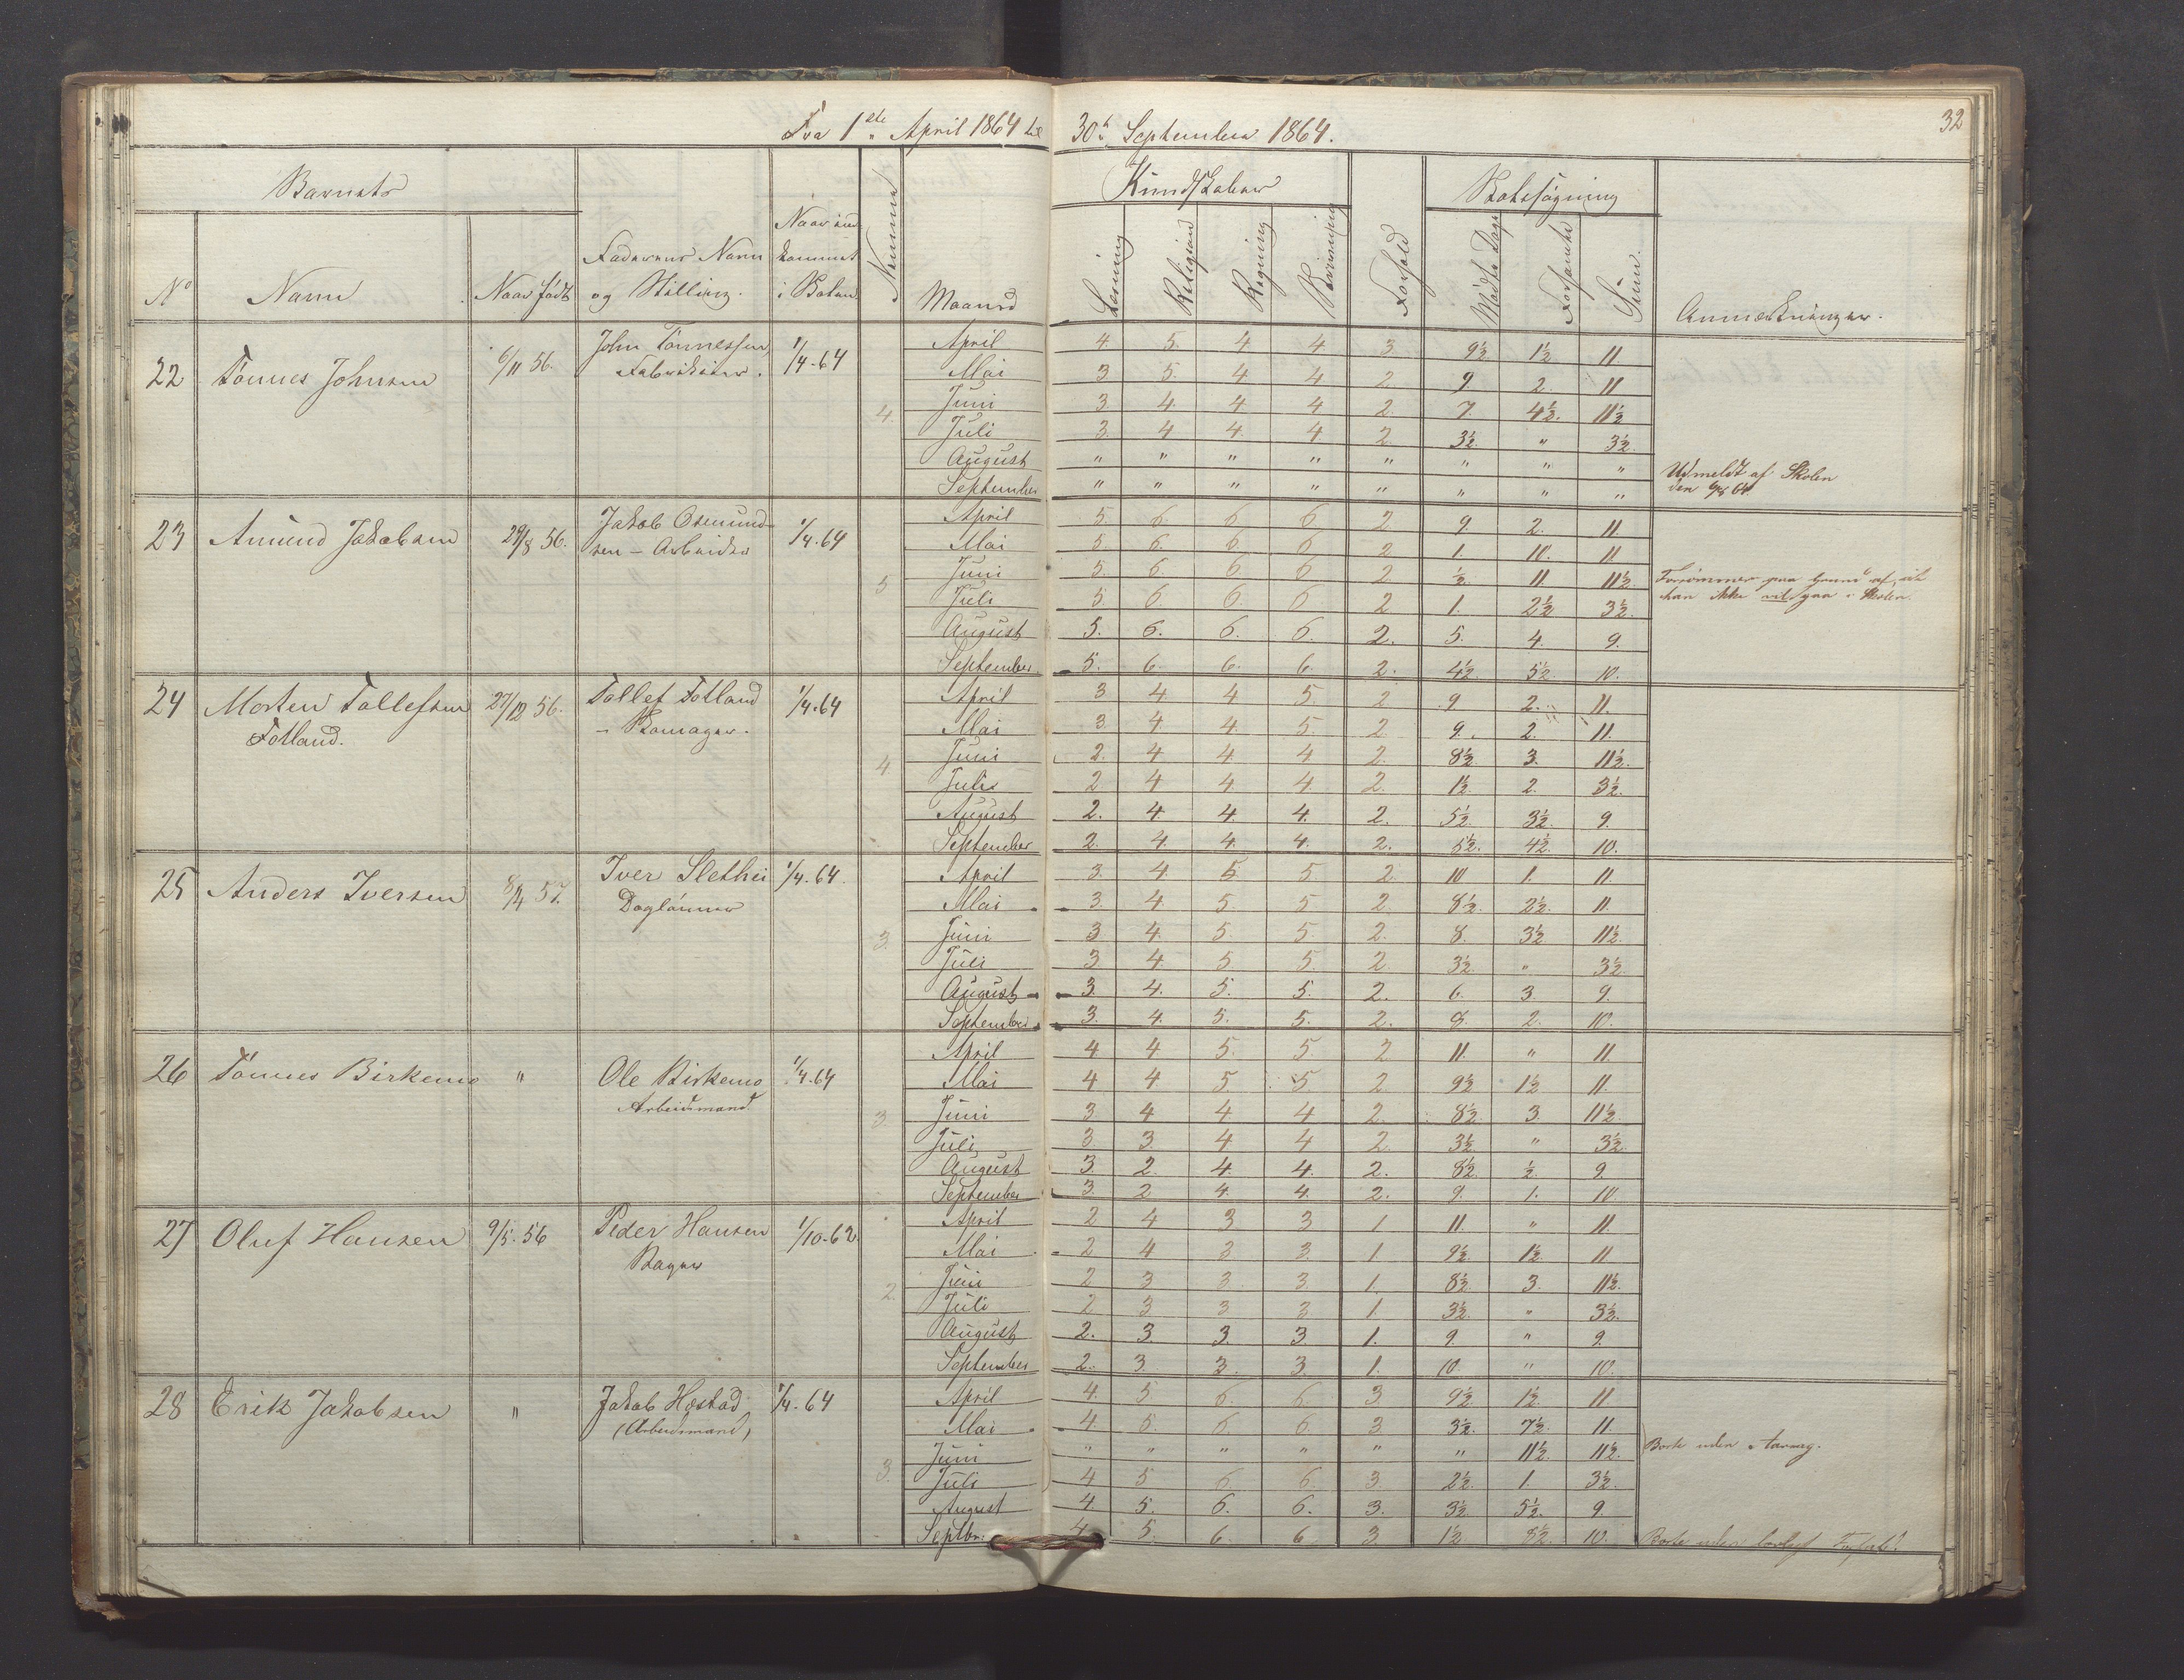 Fra 1ste April 1864 til 30te September 1864.
32
Barnets
Kundskaber
Skolesøgning
No Navn Naar født Faderens Navn og Stilling. Naar indkommet i Skolen Nummer Maaned Læsning Religion Regning Skrivning Forhold Mødte Dage Forsømte Sum. Anmærkninger.
22 Tönnes Johnsen 6/11 56. John Tönnessen 1/4-64 4
April 4 5. 4 4 3 9½ 1½ 11
Mai 3 5. 4 4 2 9. 2. 11
Juni 3. 4. 4 4 2. 7. 4½. 11½
Juli 3. 4 4. 4 2. 3½. " 3½.
August " " " " " " " "
September " " " " " " " " Udmeldt af Skolen
23 Amund Jakobsen 29/8 56. Jakob Osmundsen - Arbeider 1/4.64 5
April 5. 6. 6 6 2 9. 2. 11.
Mai 5 6. 6 6 2 1. 10. 11
Juni 5. 6. 6 6 2. ½. 11. 11½. Forsømmer paa Grund af, at
Juli 5. 6 6. 6. 2 1. 2½ 3½. han ikke vil gaa i Skolen.
August 5. 6. 6. 6. 2. 5. 4. 9.
September 5. 6. 6. 6. 2. 4½ 5½. 10.
24 Morten Tollefsen Fotland. 27/12 56. Tollef Fotland - Skomager. 1/4.64 4
April 3 4 4 5. 2 9 2. 11.
Mai 3. 4. 4. 5. 2 9. 2. 11.
Juni 2. 4 4. 4 2. 8½ 3. 11½.
Juli 2. 4 4. 4. 2. 1½. 2. 3½.
August 2. 4. 4. 4. 2. 5½. 3½. 9.
September 2. 4. 4. 4. 2. 5½. 4½. 10.
25 Anders Iversen 8/4 57. Iver Slethei Daglönner 1/4.64. 3.
April 3. 4. 5 5 2. 10 1. 11.
Mai 3. 4. 5. 5 2. 8½. 2½. 11.
Juni 3 4. 5. 5. 2. 8. 3½ 11½.
Juli 3 4. 5 5. 2 3½. " 3½.
August 3. 4. 5. 5. 2. 6. 3. 9.
September 3. 4. 5. 5. 2. 8. 2. 10.
26 Tönnes Birkemo " Ole Birkemo Arbeidsmand 1/4.64 3.
April 4 4 5. 5. 2 11. " 11.
Mai 4 4 5. 5 2. 9½ 1½ 11.
Juni 3 4 4 4 2. 8½. 3. 11½.
Juli 3. 3. 4 4 2. 3½. " 3½.
August 3. 2. 4. 4. 2. 8½ ½. 9.
September 3. 2 4. 4. 2. 9. 1. 10.
27 Oluf Hansen 9/5. 56 Peder Hansen Bager 1/10-62. 2.
April 2 4 3 3 1 11. " 11.
Mai 2 4 3 3. 1 9½. 1½. 11
Juni 2 3 3. 3. 1. 8½. 3. 11½.
Juli 2 3 3 3 1. 3½. " 3½.
August 2. 3. 3. 3 1. 9. " 9.
September 2. 3. 3. 3. 1. 10. " 10.
28 Erik Jakobsen " Jakob Høstad (Arbeidsmand) 1/4.64 3.
April 4. 5 6. 6 3 9½ 1½. 11
Mai 4. 5. 6 6. 3. 3½. 7½. 11.
Juni " " " " " " 11½. 11½. Borte uden Aarsag.
Juli 4 5 6 6. 3. 2½. 1. 3½.
August 4. 5. 6. 6. 3. 3½ 5½. 9.
Septbr. 4. 5. 6. 6 3. 1½ 8½. 10. Borte uden